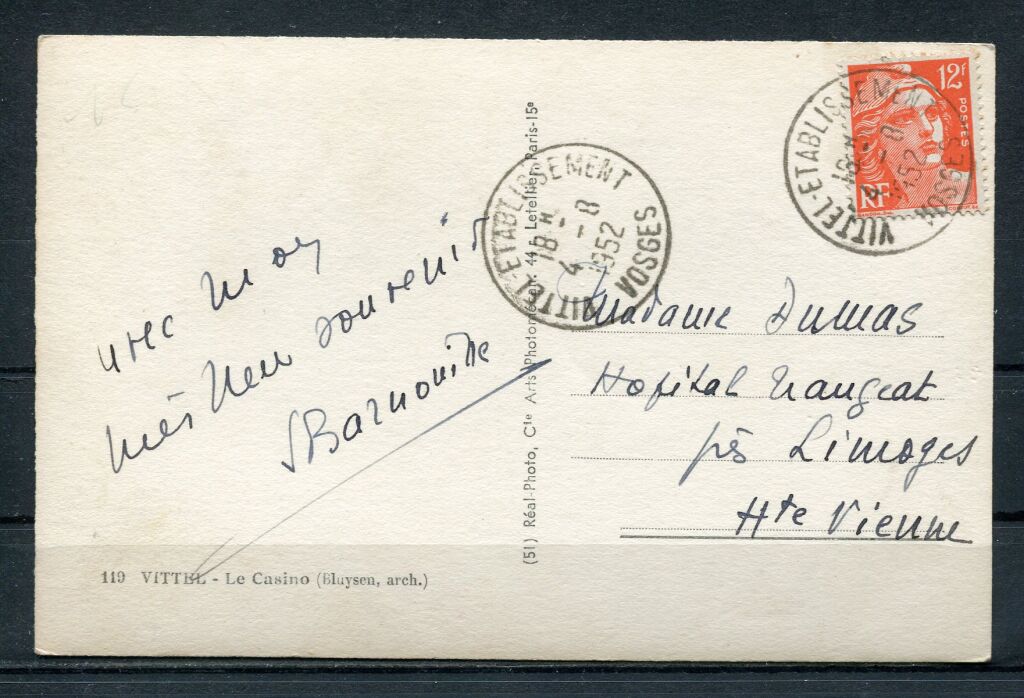 avec mon
meilleur souvenir
119 VITTEL - Le Casino (Bluysen, arch.)
(51) Réal-Photo, Cie Arts Photomécan. 44, r. Letellier, Paris-15e
VITTEL-ETABLISSEMENT
18 H
4 - 8
1952
VOSGES
12f
POSTES
RF
VITTEL-ETABLISSEMENT
18 H
4 - 8
1952
VOSGES
Madame Dumas
Hopital
près Limoges
Hte Vienne